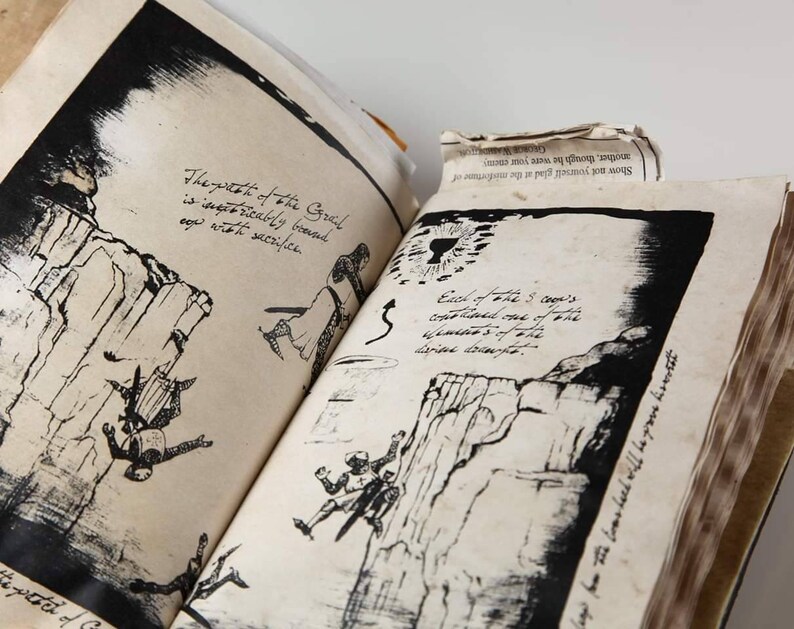 The path of the Grail
is inextricably bound
up with sacrifice.
the path of G
Show not yourself glad at the misfortune of
another, though he were your enemy.
GEORGE WASHINGTON
Each of the 3 cups
contained one of the
elements of the
divine
leap from the lion's head will he prove his worth